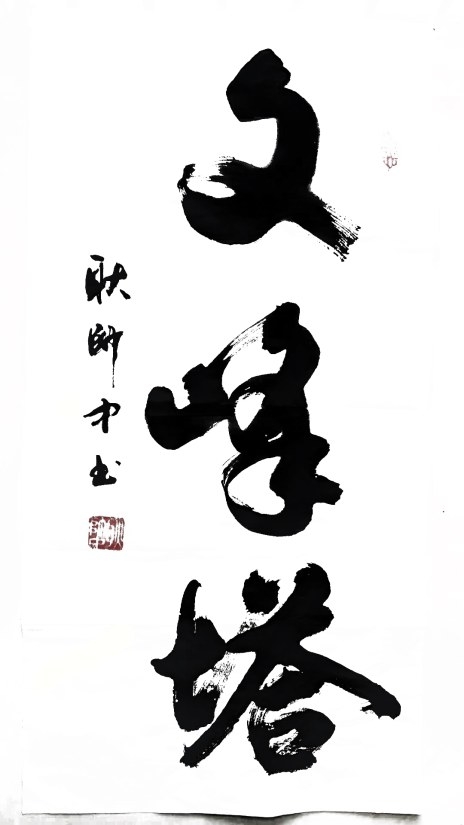 文峰塔
耿師中书